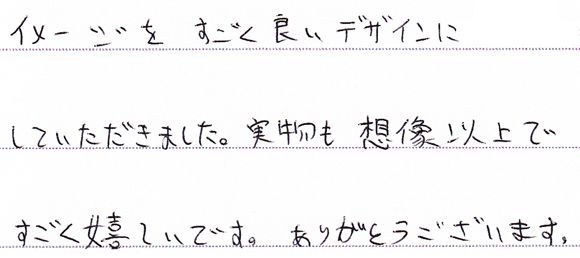 イメージを すごく良いデザインに
していただきました。実物も想像以上で
すごく嬉しいです。ありがとうございます。